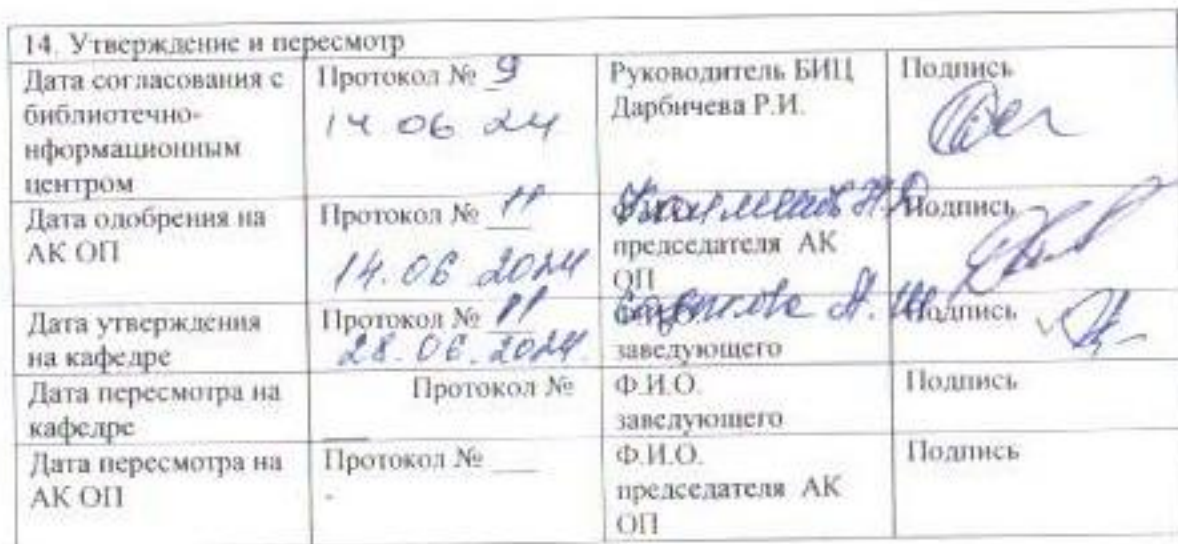 14. Утверждение и пересмотр
Дата согласования с
библиотечно-
нформационным
центром
Протокол № 9
14 06 24
Руководитель БИЦ
Дарбичева Р.И.
Подпись
Дата одобрения на
АК ОП
Протокол № 11
14.06 2024
председателя АК
ОП
Подпись
Дата утверждения
на кафедре
Протокол № 11
28.06.2024
заведующего
Подпись
Дата пересмотра на
кафедре
Протокол №
Ф.И.О.
заведующего
Подпись
Дата пересмотра на
АК ОП
Протокол №
-
Ф.И.О.
председателя АК
ОП
Подпись